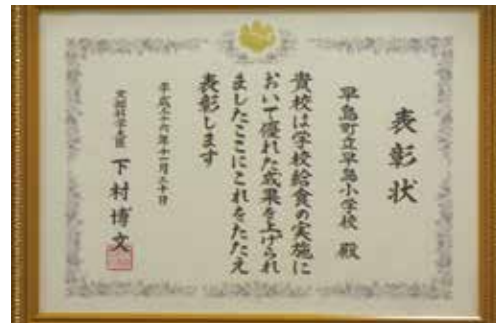 表彰状
早島町立早島小学校 殿
貴校は学校給食の実施に
おいて優れた成果を上げられ
ましたここにこれをたたえ
表彰します
平成二十六年十一月二十日
文部科学大臣 下村博文